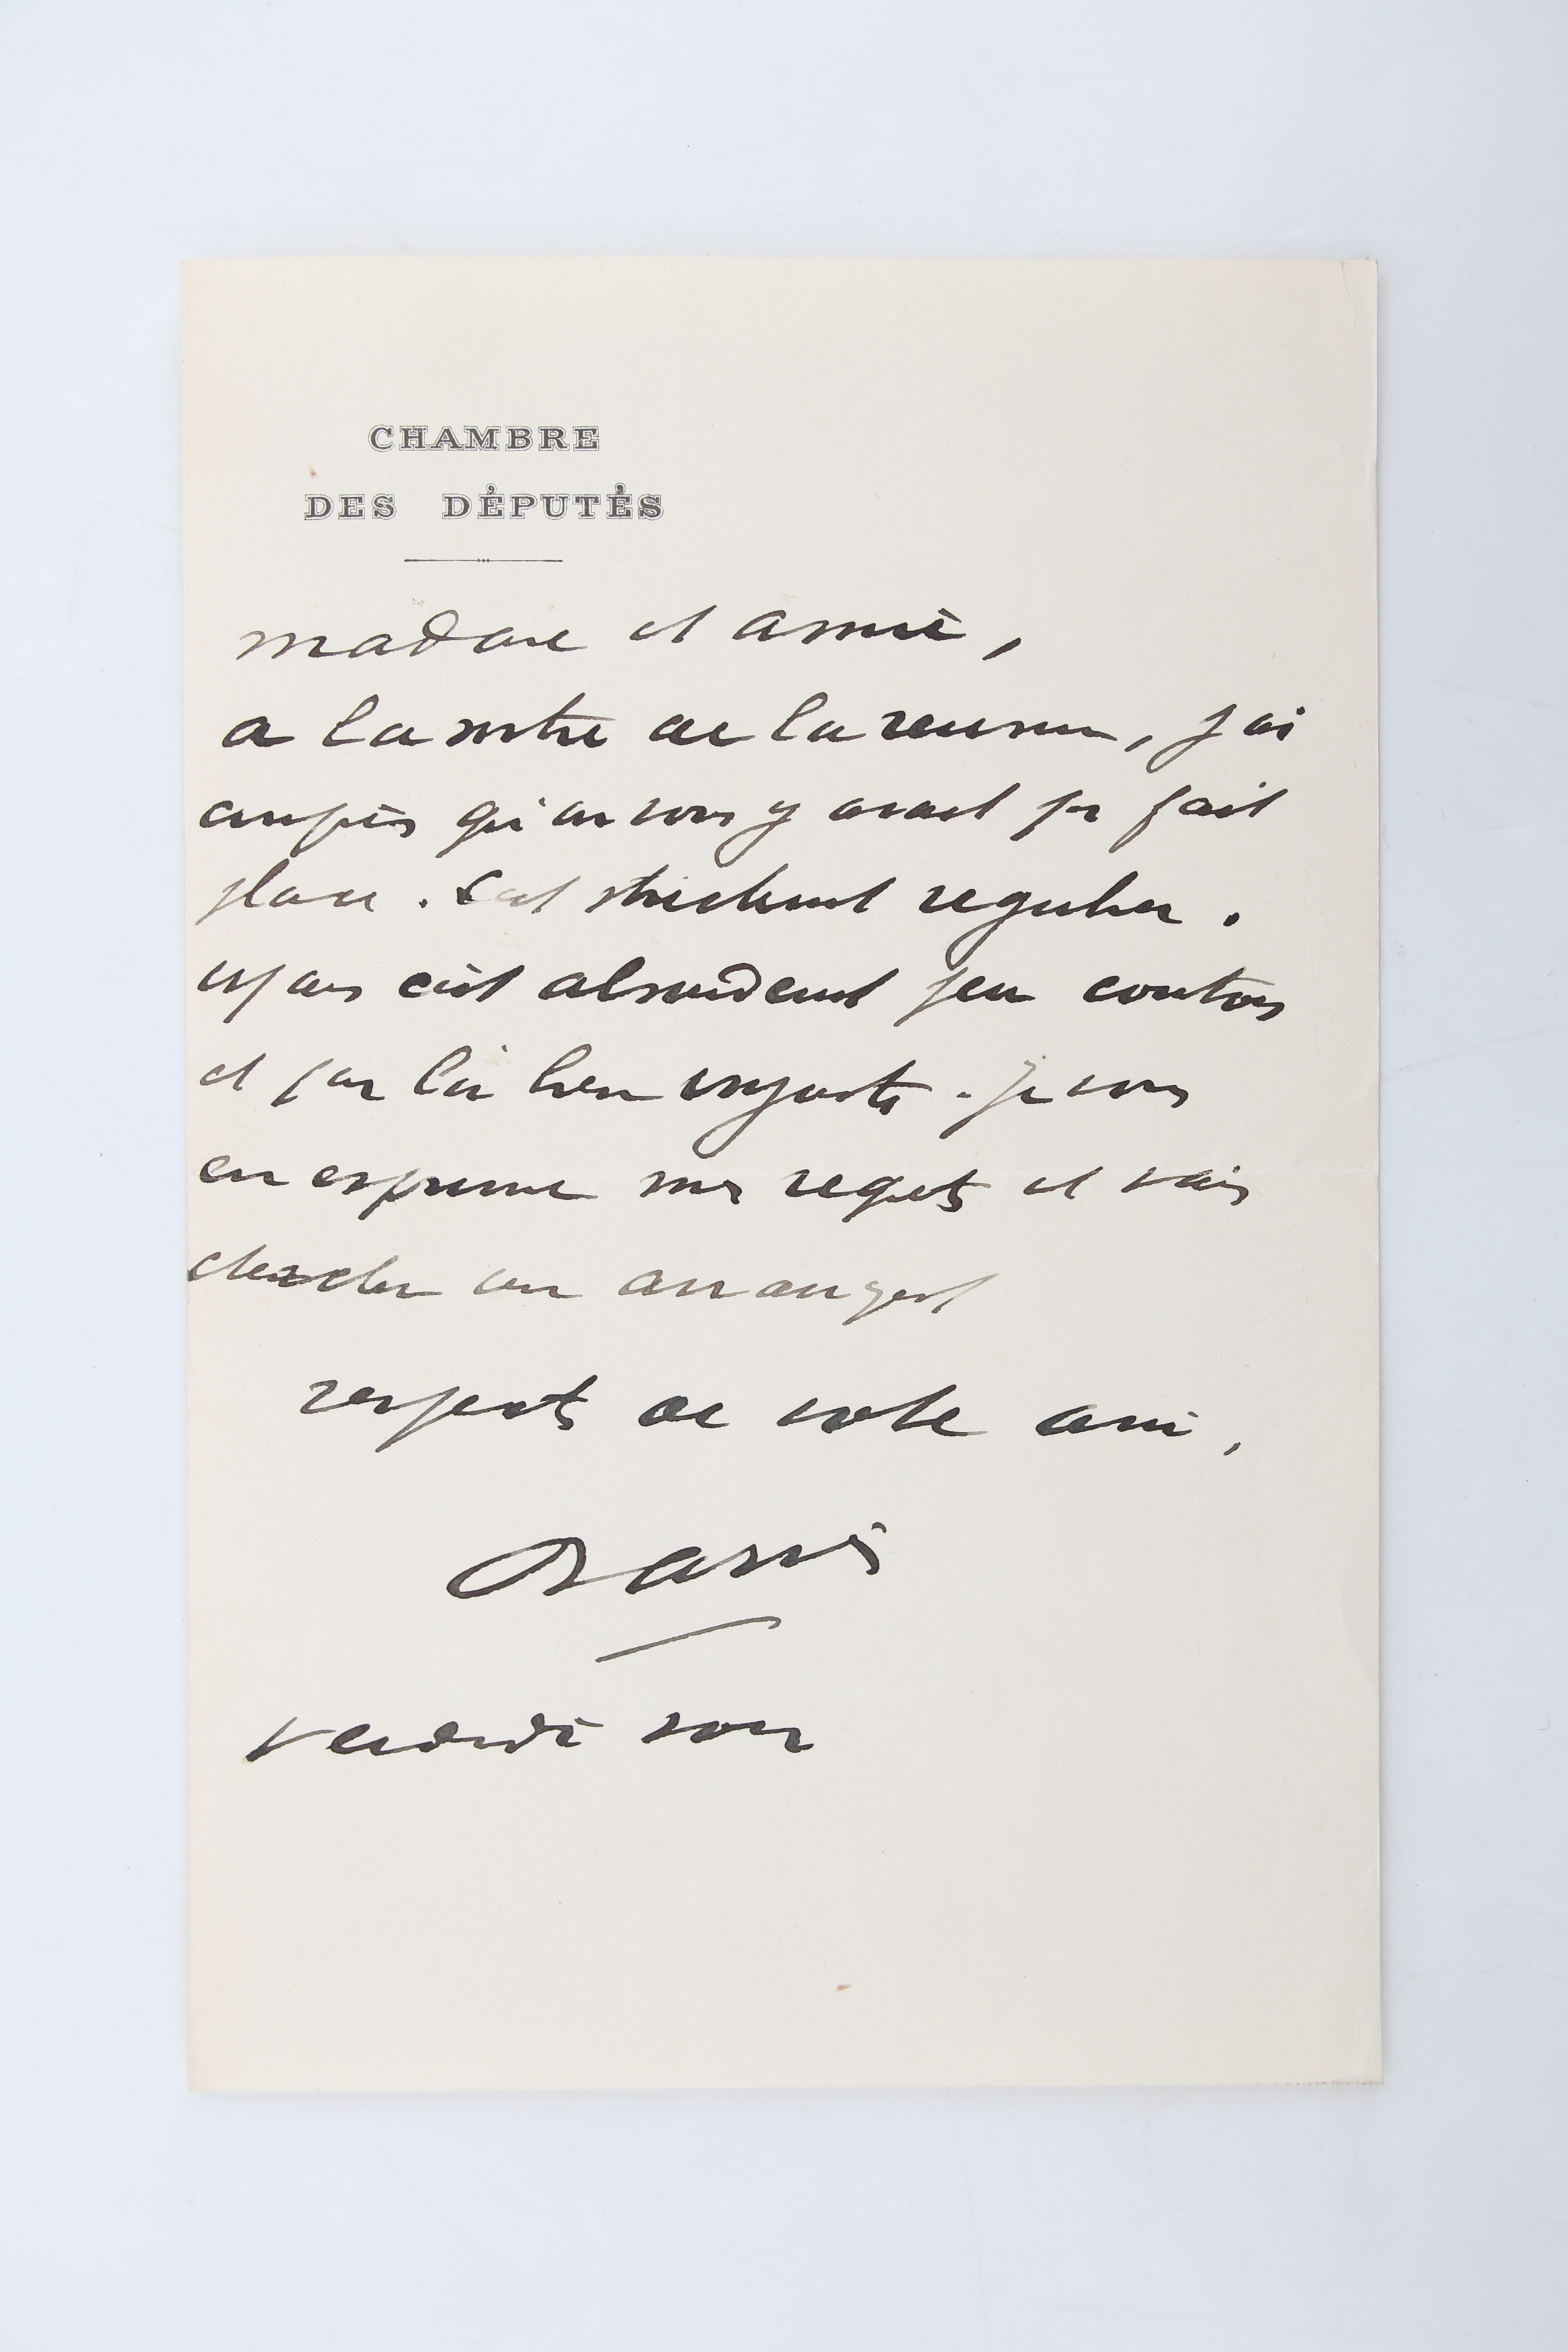 CHAMBRE
DES DÉPUTÉS
madame et amie,
a la sortie de la reunion, j'ai
qu'on vous y avait pr fait
place. C'est strictement regulier.
mais c'est absurdement peu courtois
et par là bien injuste. Je vous
en exprime mes regrets et vais
chercher un arrangt
respects de votre ami,
Barrès
vendredi soir